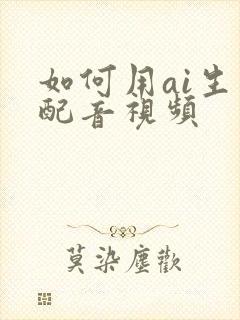 如何用ai生
配音視頻
莫染塵歡